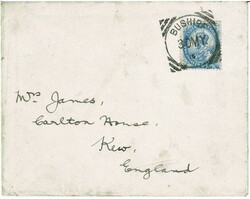 BUSHIRE
30 MY
Mrs James,
Carlton House,
Kew,
England